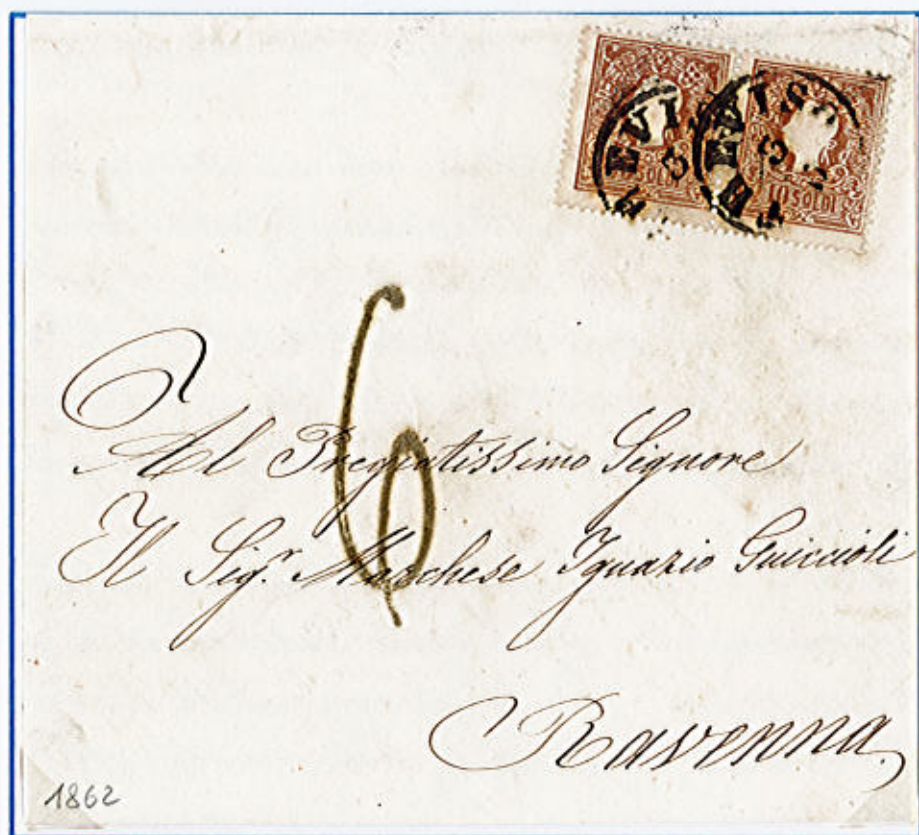 10 SOLDI
10 SOLDI
6
Al Pregiatissimo Signore
Il Sig.r Marchese Ignazio Guiccioli
Ravenna
1862